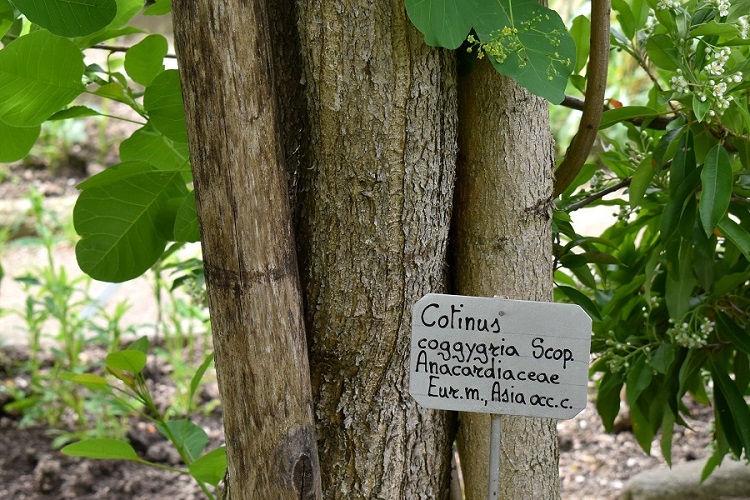 Cotinus
coggygria Scop.
Anacardiaceae
Eur.m., Asia occ.c.